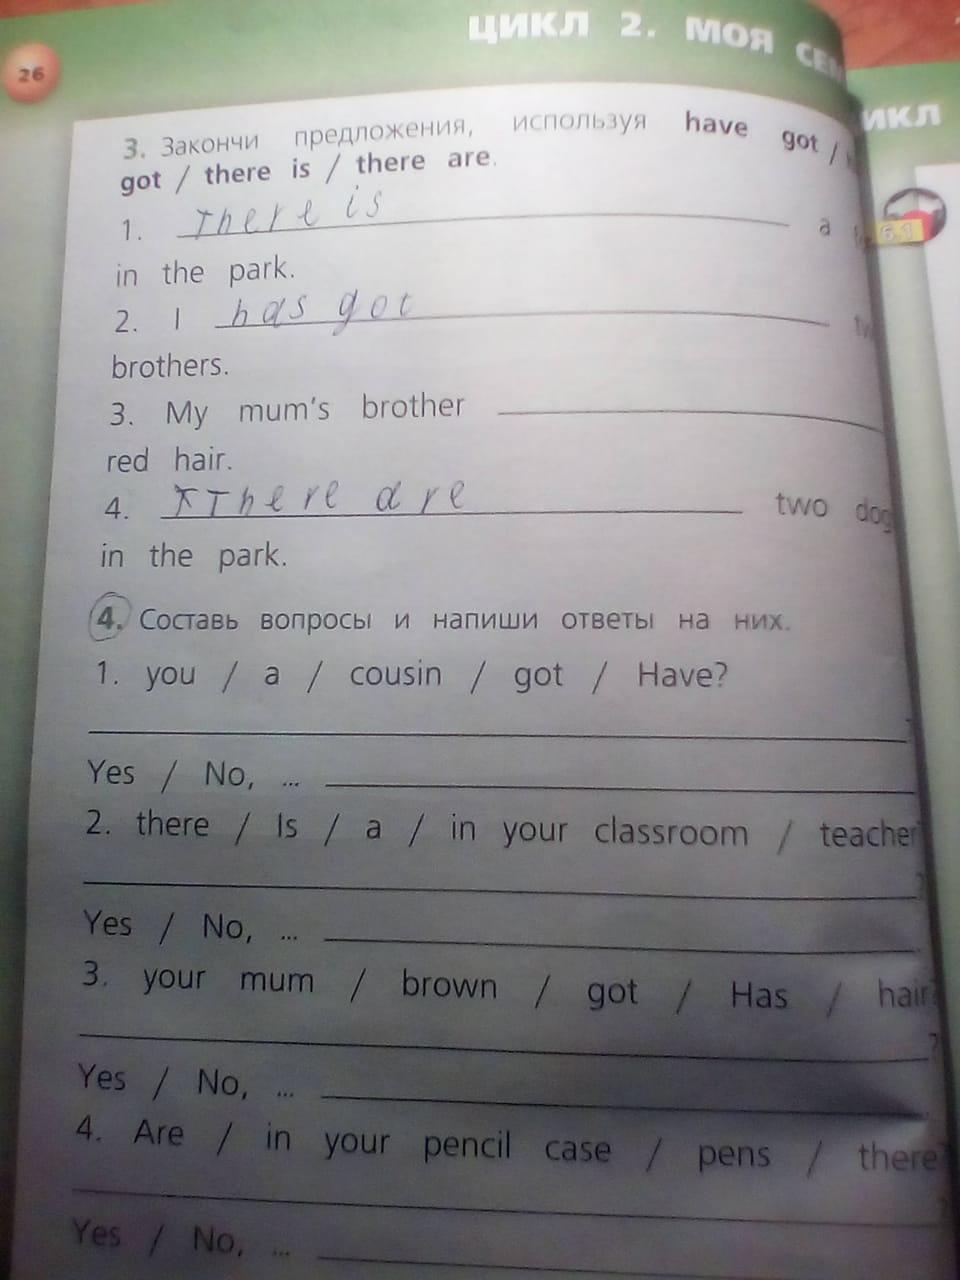 ЦИКЛ 2. МОЯ
26
3. Закончи предложения, используя have got /
got / there is / there are.
1. There is a
in the park.
2. I has got
brothers.
3. My mum's brother
red hair.
4. There are two dog
in the park.
4. Составь вопросы и напиши ответы на них.
1. you / a / cousin / got / Have?
Yes / No, ...
2. there / Is / a / in your classroom / teacher
?
Yes / No, ...
3. your mum / brown / got / Has / hair?
?
Yes / No, ...
4. Are / in your pencil case / pens / there
Yes / No, ...
6.1